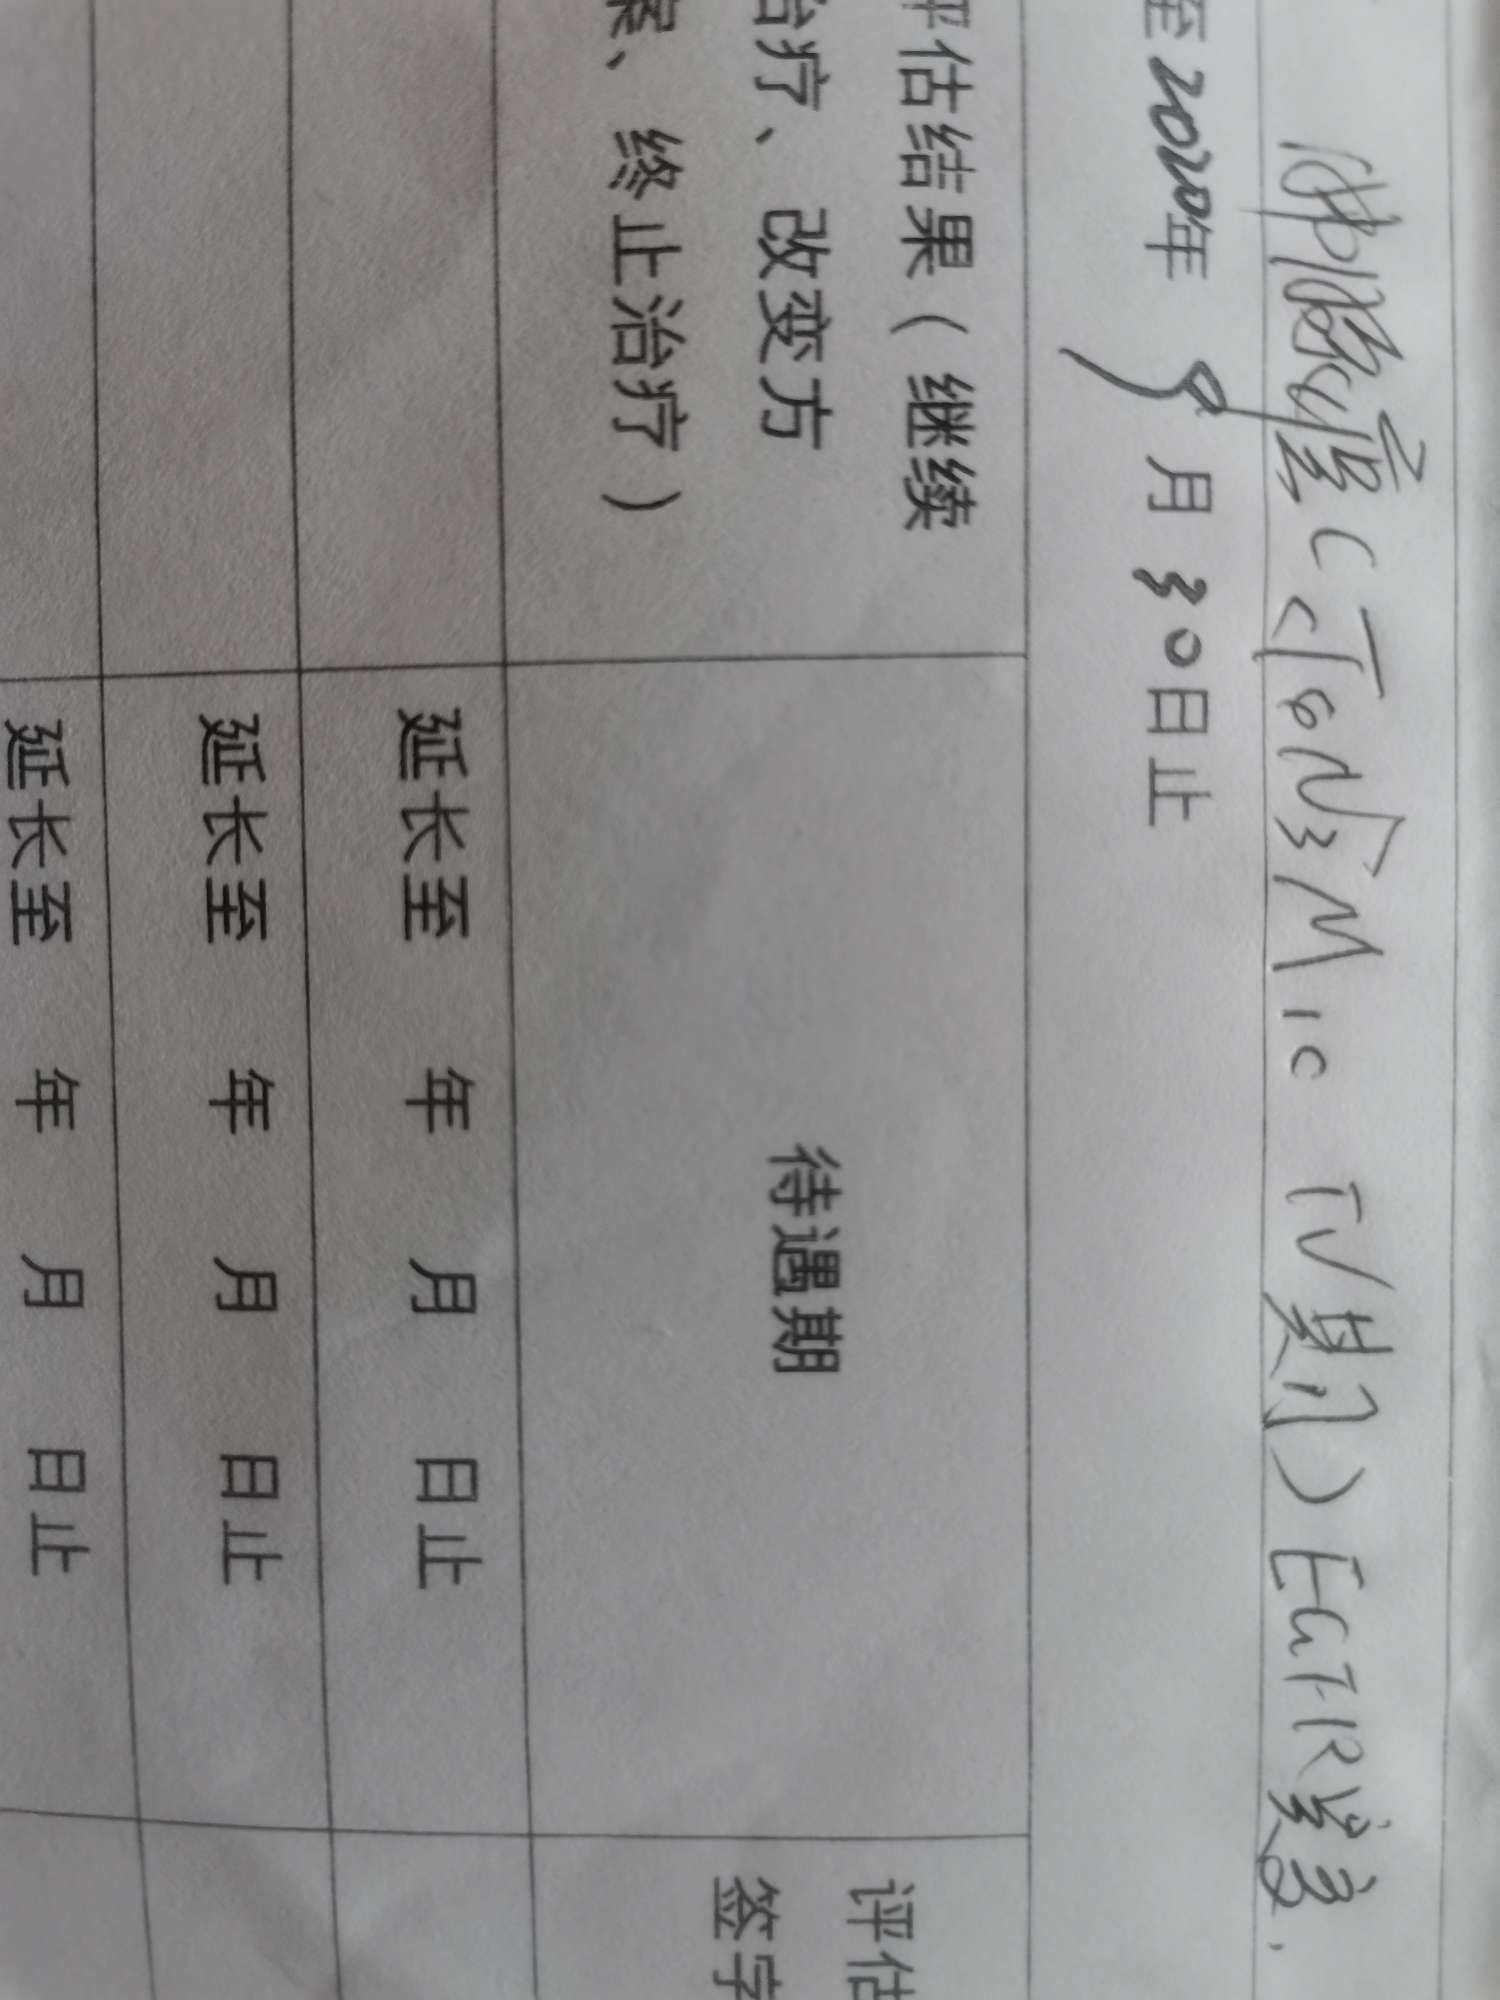 肺腺癌(T4N3M1c IV期)EGFR突变.
至2020年9月30日止
评估结果(继续 待遇期 评估
治疗、改变方 签字
案、终止治疗)
延长至 年 月 日止
延长至 年 月 日止
延长至 年 月 日止